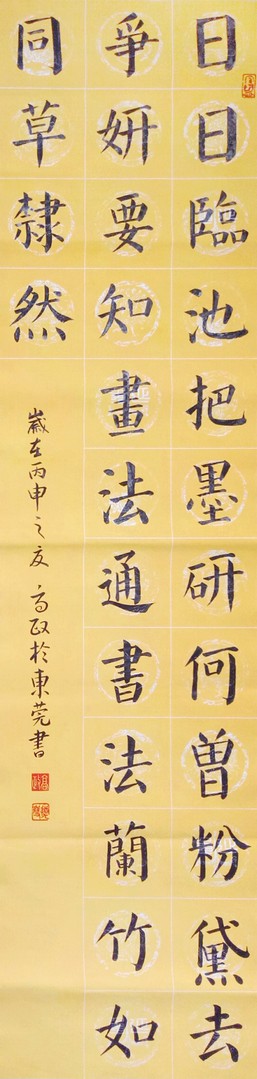 日日臨池把墨研何曽粉黛去
爭妍要知畫法通書法蘭竹如
同草隸然
歲在丙申之夏高政於東莞書